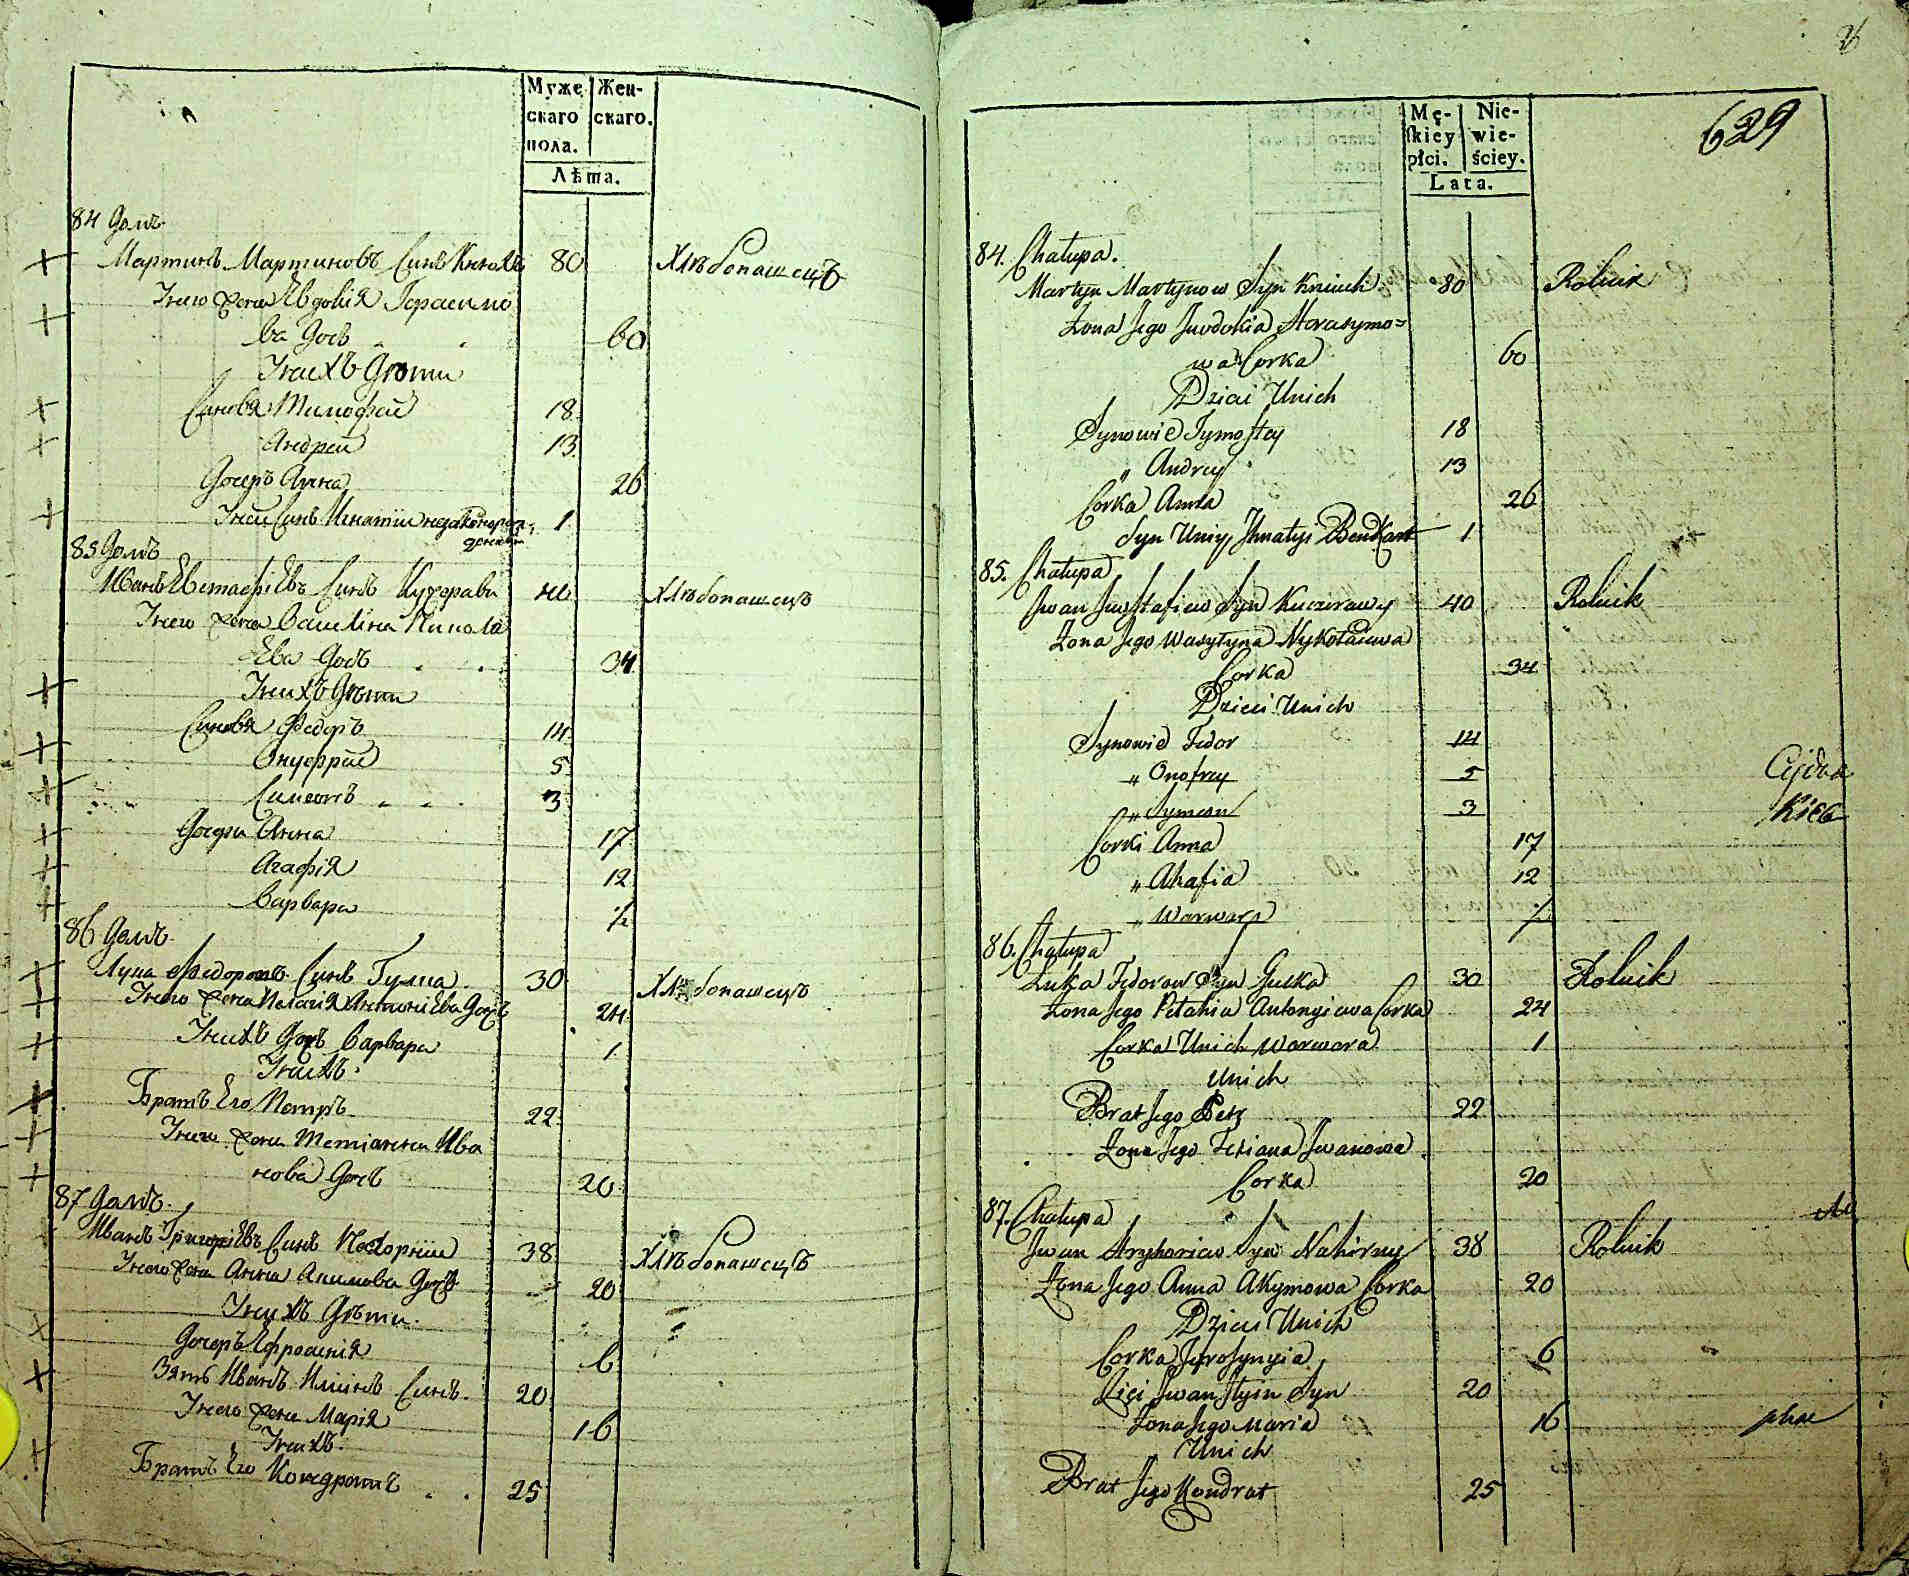 Муже
скаго
пола.
Жен-
скаго.
Лѣта.
84 Домъ
Мартинъ Мартиновъ Синъ 80 Хлѣбопашецъ
Унего жена Евдокія Герасимо
ва Дочь 60
Унихъ Дѣти
Синовя Тимофей 18
Андрей 13
Дочерь Анна 26
Уней Синъ Игнатій незаконорож
денни 1
85 Домъ
Иванъ Евстафіевъ Синъ Кучерави 40 Хлѣбопашецъ
Унего жена Василина Никола
Ева Дочь 34
Унихъ Дѣти
Синовя Федоръ 14
Онуфрій 5
Симеонъ 3
Дочери Анна 17
Агафія 12
Варвара ½
86 Домъ
Лука Федоровъ Синъ Гулка 30 Хлѣбопашецъ
Унего жена Пелагія Антоніева Дочь 24
Унихъ Дочь Варвара 1
Унихъ
Братъ Его Петръ 22
Унего жена Тетіанна Ива
нова Дочь 20
87 Домъ
Иванъ Григоріевъ Синъ 38 Хлѣбопашецъ
Унего жена Анна Акимова Дочь 20
Унихъ Дѣти
Дочерь Ефросинія 6
Зять Иванъ Илиинъ Синъ 20
Унего жена Марія 16
Унихъ
Братъ Его Кондратъ 25
26
629
Mę-
skiey
płci.
Nie-
wie-
ściey.
Lata.
84. Chałupa.
Martyn Martynow Syn Kniuch 80 Rolnik
Żona Jego Jwdokia Harasymo=
wa Corka 60
Dzieci Unich
Synowie Tymoftey 18
„ Andrey 13
Corka Anna 26
Syn Uniy Jhnatyi Benkart 1
85. Chałupa
Jwan Jwstafiew Syn Kuczerawy 40 Rolnik
Żona Jego Wasyłyna Nykołaiewa
Corka 34
Dzieci Unich
Synowie Fedor 14
„ Onofrey 5
„ Symeon 3
Corki Anna 17
„ Ahafia 12
„ Warwara ½
86. Chałupa
Łuka Fedorow Syn Gulka 30 Rolnik
Żona Jego Pełahia Antonyiewa Corka 24
Corka Unich Warwara 1
Unich
Brat Jego Petr 22
Żona Jego Tetiana Jwanowa
Corka 20
87. Chałupa
Jwan Hryhoriew Syn Nahirny 38 Rolnik
Żona Jego Anna Akymowa Corka 20
Dzieci Unich
Corka Jefrosynyia 6
Zięć Jwan Jłyin Syn 20
Żona Jego Maria 16
Unich
Brat Jego Kondrat 25